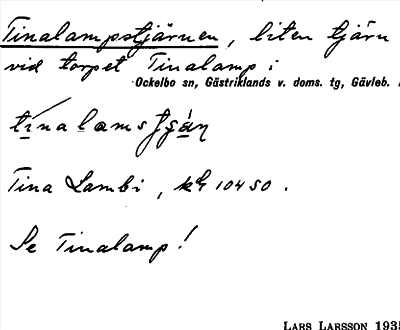 Tinalampstjärnen, liten tjärn
vid torpet Tinalamp i
Ockelbo sn, Gästriklands v. doms. tg, Gävleb.
Tina Lambi, 10450.
Se Tinalamp!
LARS LARSSON 193